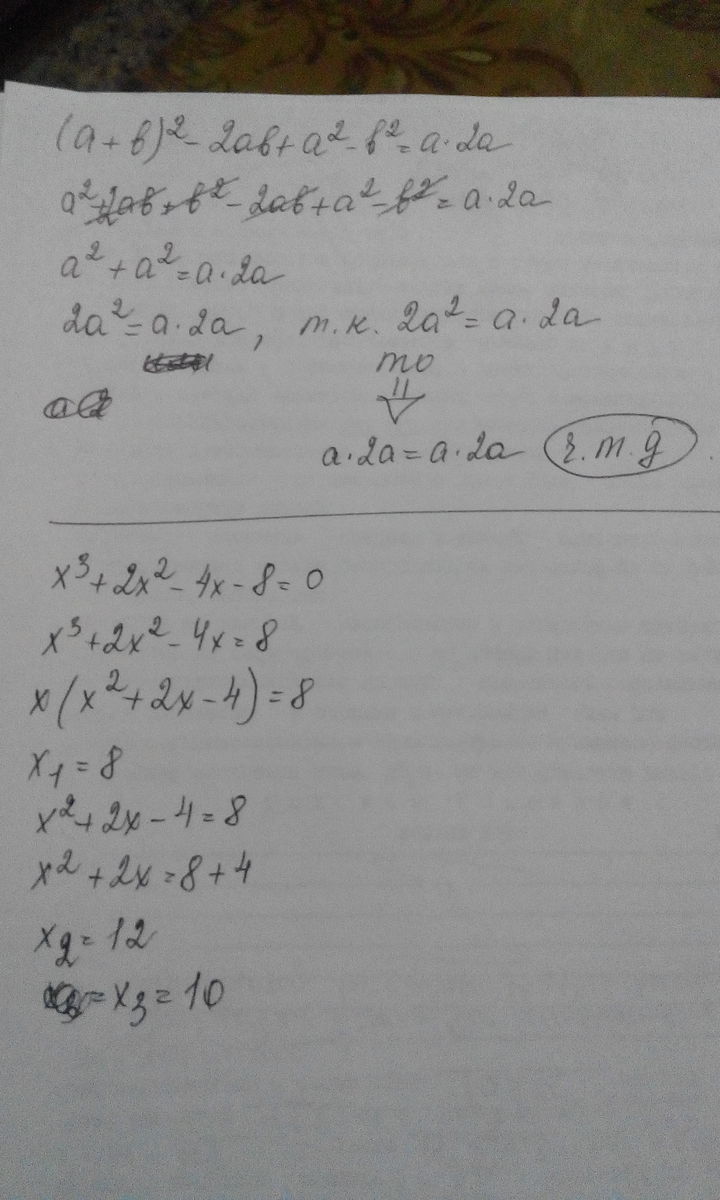 (a+b)²- 2ab+ a²-b²= a·2a
a²+2ab+b²-2ab+a²-b²= a·2a
a²+a²=a·2a
2a²=a·2a, т.к. 2a²=a·2a
то
⇓
a·2a=a·2a ч.т.д.
x³+2x²-4x-8=0
x³+2x²-4x=8
x(x²+2x-4)=8
x₁=8
x²+2x-4=8
x²+2x=8+4
x₂=12
=x₃=10